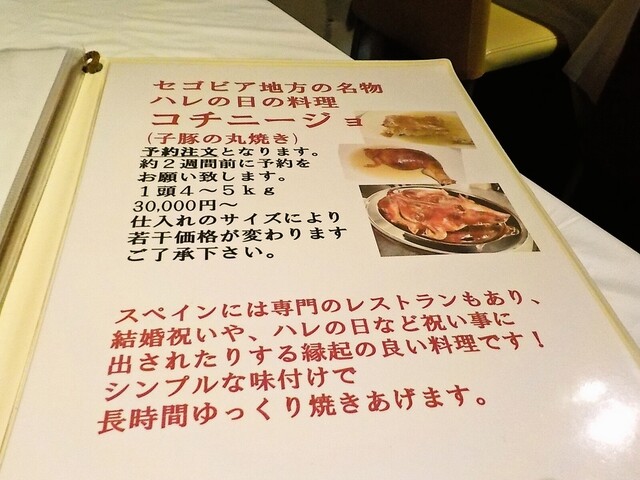 セゴビア地方の名物
ハレの日の料理
コチニージョ
(子豚の丸焼き)
予約注文となります。
約2週間前に予約を
お願い致します。
1頭4~5kg
30,000円~
仕入れのサイズにより
若干価格が変わります
ご了承下さい。
スペインには専門のレストランもあり、
結婚祝いや、ハレの日など祝い事に
出されたりする縁起の良い料理です!
シンプルな味付けで
長時間ゆっくり焼きあげます。